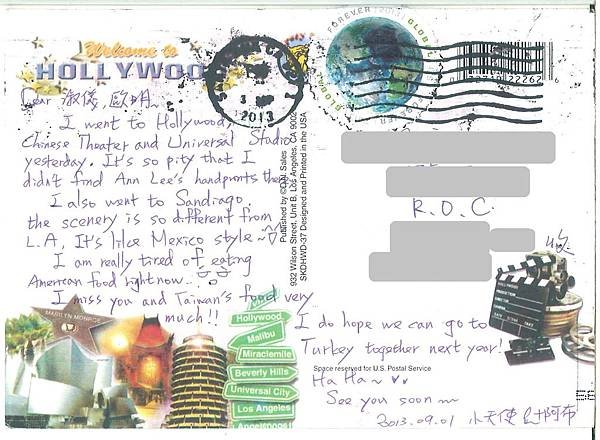 Welcome to
HOLLYWOO
Dear 淑俊, 歐明~
I went to Hollywood,
Chinese Theater and Universal Studio
yesterday. It's so pity that I
didn't find Ann Lee's handprints there.
I also went to Sandiago.
the scenery is so different from
L.A, It's like Mexico style~
I am really tired of eating
American food right now...
I miss you and Taiwan's food very
much!!
2013
Published by ©DW Sales
932 Wilson Street, Unit B, Los Angeles, CA 9002
SKDHWD-37 Designed and Printed in the USA
FOREVER 2013 GLOBAL
R.O.C.
收
I do hope we can go to
Turkey together next year!
Space reserved for U.S. Postal Service
Ha Ha~
See you soon~
2013.09.01 小天使 & 阿布
MARILYN MONROE
Hollywood
Malibu
Miraclemile
Beverly Hills
Universal City
Los Angeles